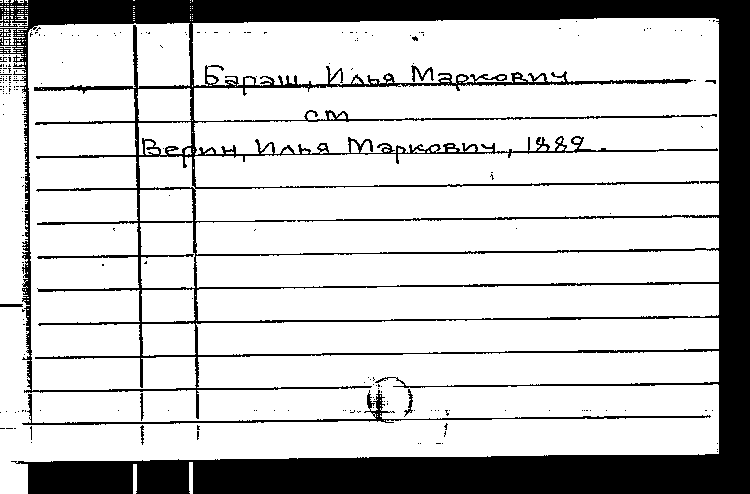 Бараш, Илья Маркович
ст
Верин, Илья Маркович, 1889.